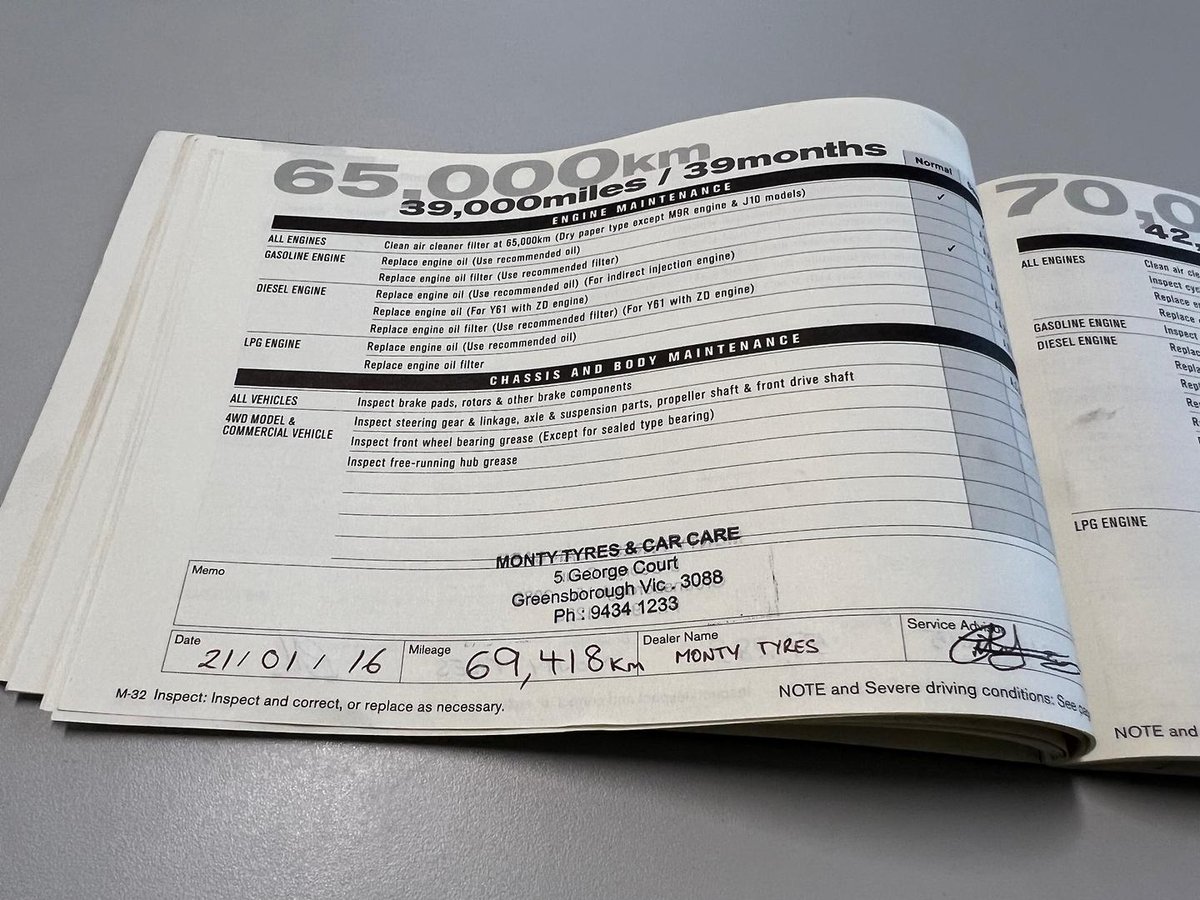 65,000km
39,000miles / 39months
Normal
ENGINE MAINTENANCE
ALL ENGINES Clean air cleaner filter at 65,000km (Dry paper type except M9R engine & J10 models) ✓
GASOLINE ENGINE Replace engine oil (Use recommended oil)
Replace engine oil filter (Use recommended filter) ✓
DIESEL ENGINE Replace engine oil (Use recommended oil) (For indirect injection engine)
Replace engine oil (For Y61 with ZD engine)
Replace engine oil filter (Use recommended filter) (For Y61 with ZD engine)
LPG ENGINE Replace engine oil (Use recommended oil)
Replace engine oil filter
CHASSIS AND BODY MAINTENANCE
ALL VEHICLES Inspect brake pads, rotors & other brake components
4WD MODEL & COMMERCIAL VEHICLE Inspect steering gear & linkage, axle & suspension parts, propeller shaft & front drive shaft
Inspect front wheel bearing grease (Except for sealed type bearing)
Inspect free-running hub grease
Memo
MONTY TYRES & CAR CARE
5 George Court
Greensborough Vic. 3088
Ph: 9434 1233
Date 21/01/16 Mileage 69,418km Dealer Name MONTY TYRES Service Advisor
M-32 Inspect: Inspect and correct, or replace as necessary.
NOTE and Severe driving conditions: See
70,0
42,
ALL ENGINES Clean air
Inspect
Replace
Replace
GASOLINE ENGINE Inspect
DIESEL ENGINE
LPG ENGINE
NOTE and